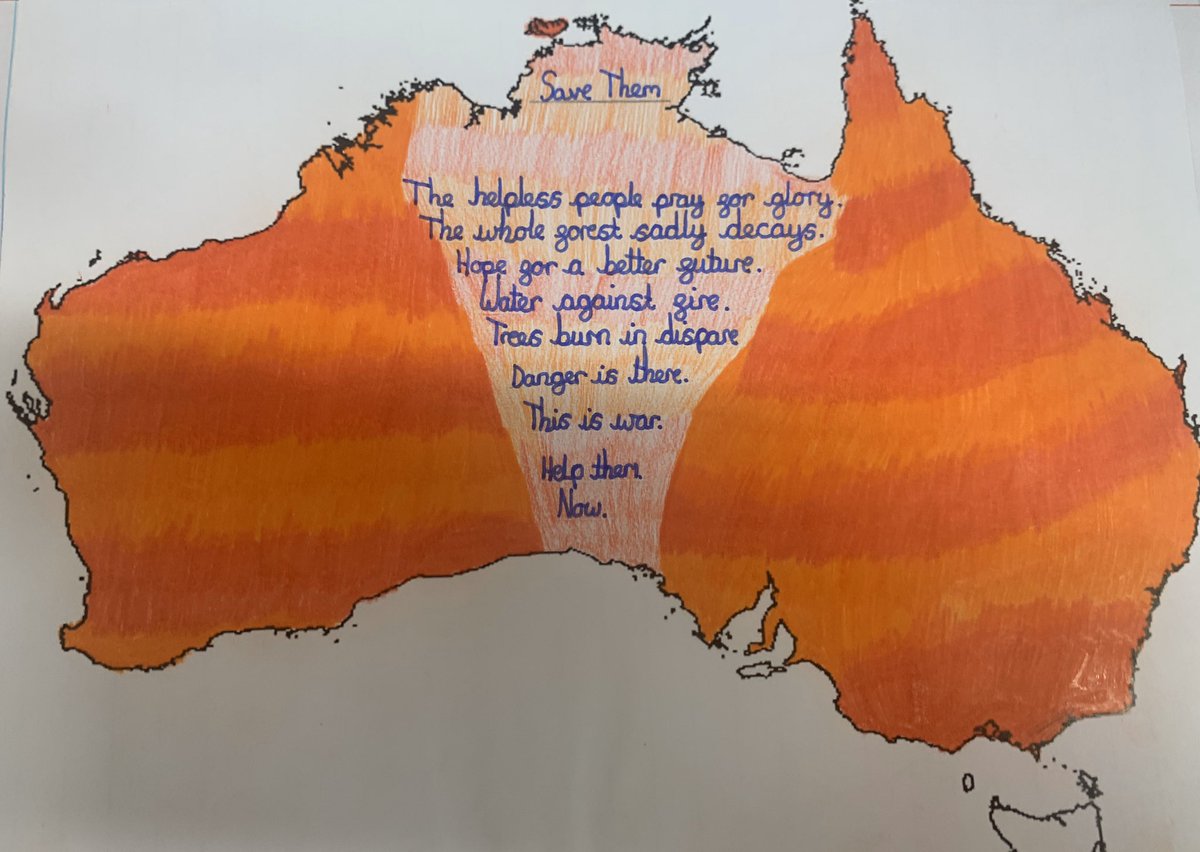 Save Them
The helpless people pray for glory.
The whole forest sadly decays.
Hope for a better future.
Water against fire.
Trees burn in dispare
Danger is there.
This is war.
Help them.
Now.